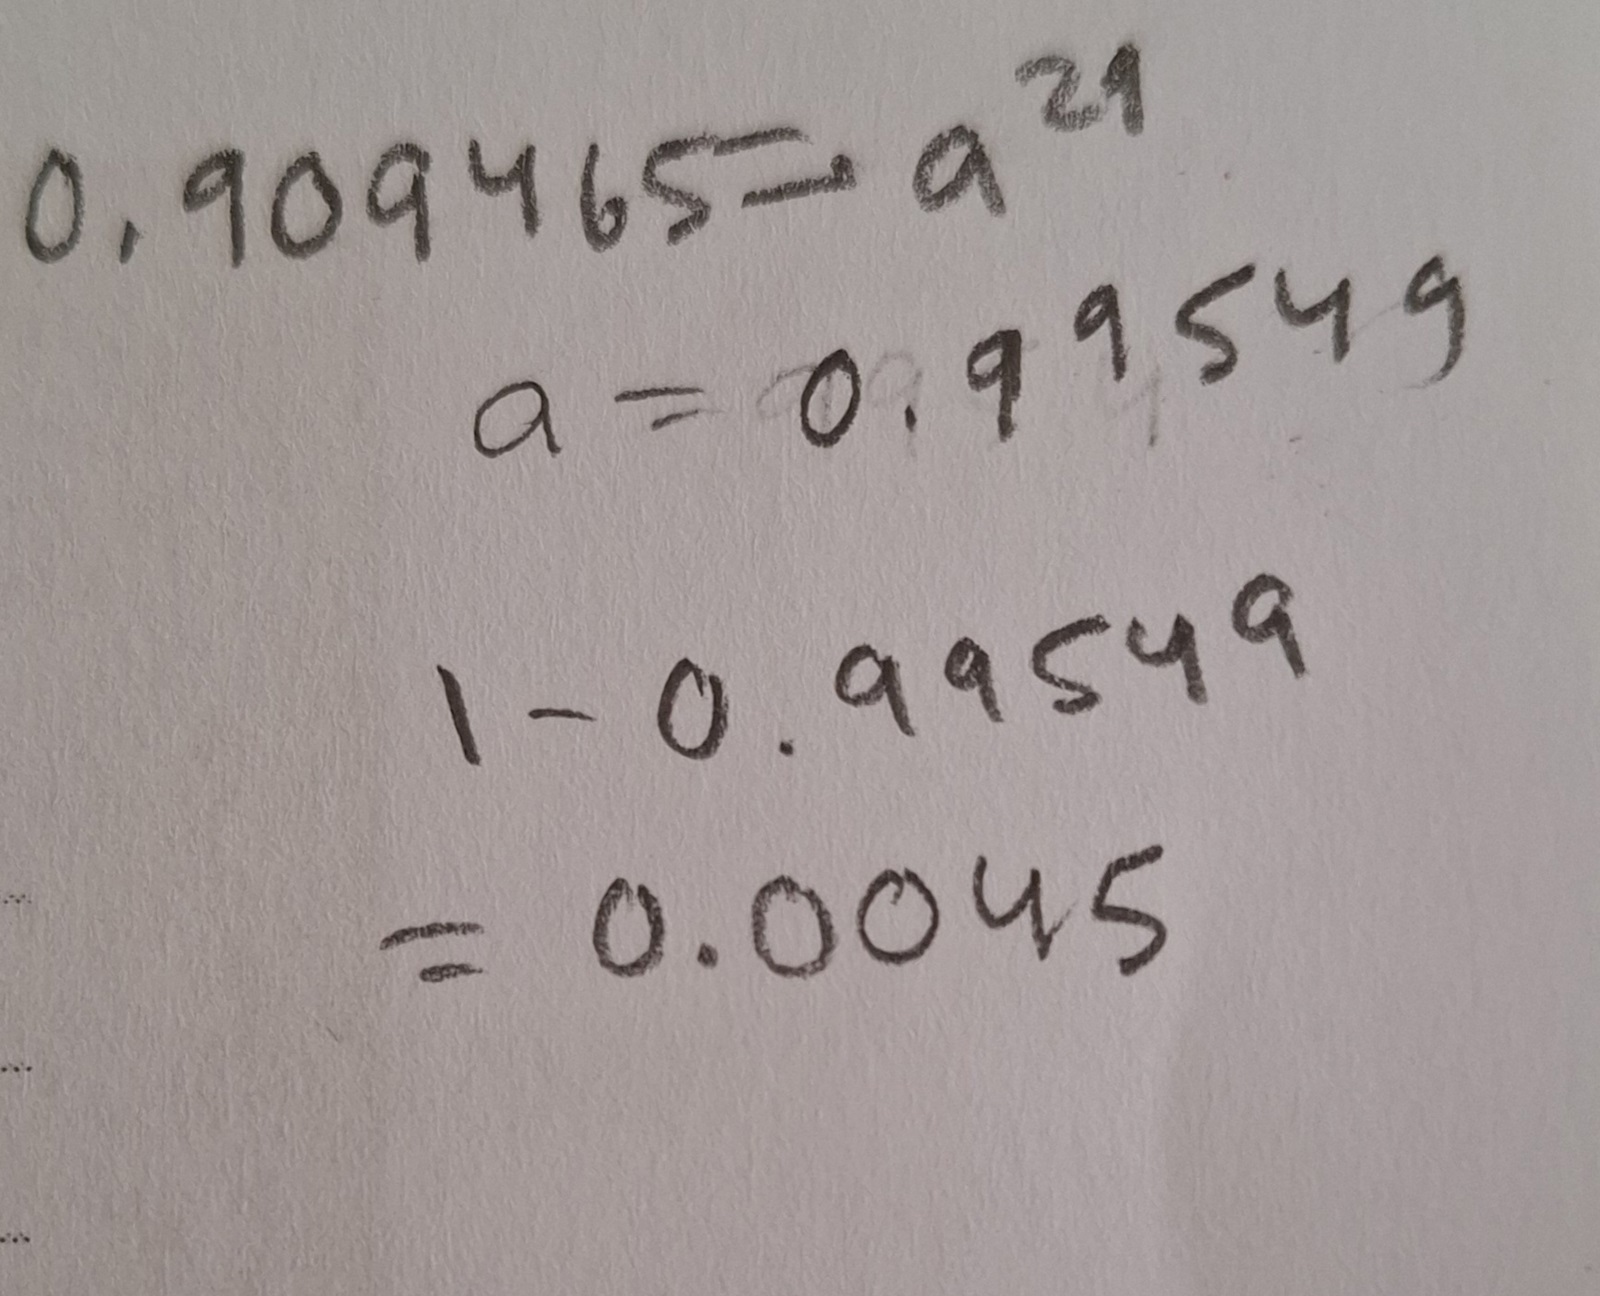 0.909465 = a²¹
a = 0.99549
1 - 0.99549
= 0.0045